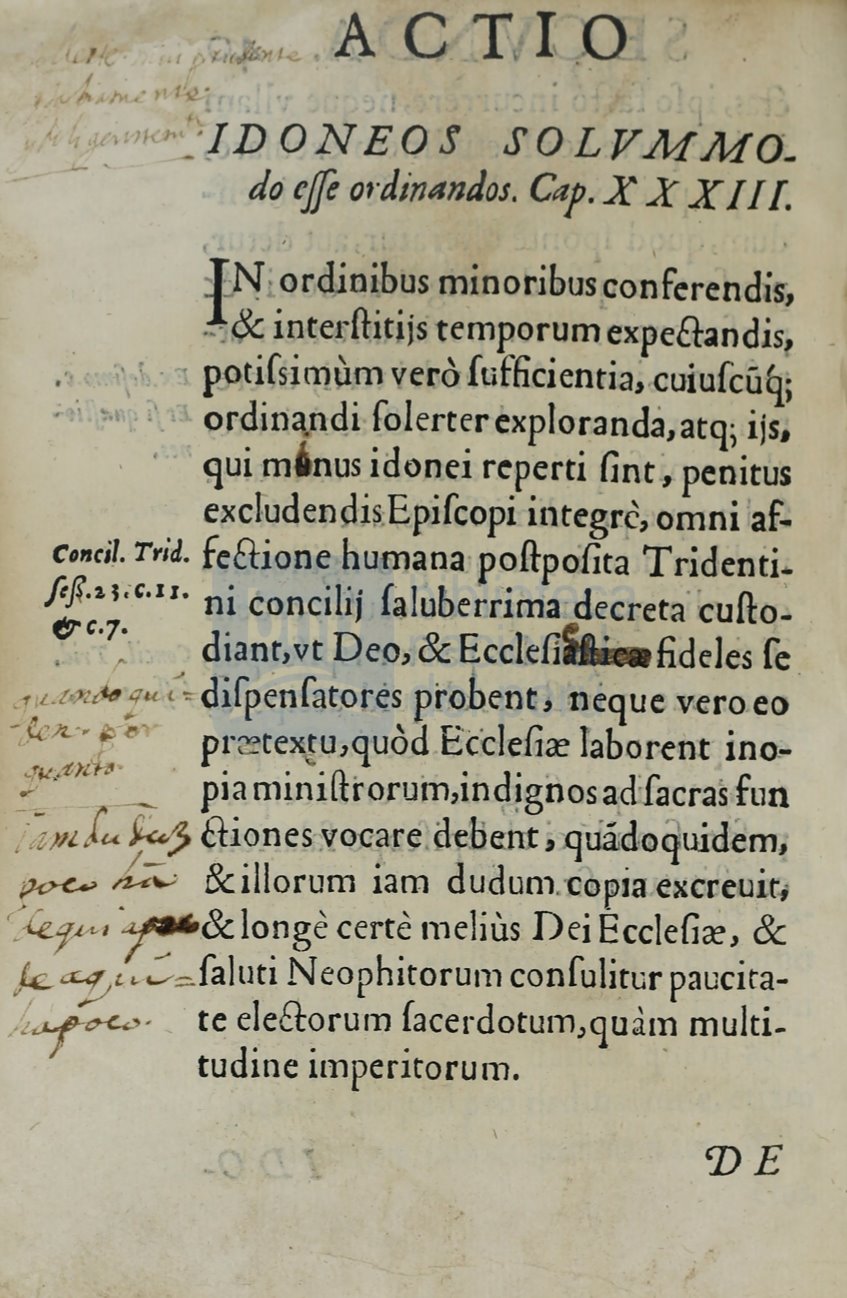 ACTIO
IDONEOS SOLVMMO-
do eſſe ordinandos. Cap. XXXIII.
IN ordinibus minoribus conferendis,
& interſtitijs temporum expectandis,
potiſsimùm verò ſufficientia, cuiuſcūq́;
ordinandi ſolerter exploranda, atq; ijs,
qui minus idonei reperti ſint, penitus
excludendis Epiſcopi integrè, omni af-
Concil. Trid.
ſeſſ. 23. c. 11.
& c. 7.
fectione humana poſtpoſita Tridenti-
ni concilij ſaluberrima decreta cuſto-
diant, vt Deo, & Eccleſiæ fideles ſe
quando qui-
diſpenſatores probent, neque vero eo
den. por
prætextu, quòd Eccleſiæ laborent ino-
quanto
pia miniſtrorum, indignos ad ſacras fun
iam dudum
ctiones vocare debent, quãdoquidem,
poco ha
& illorum iam dudum copia excreuit,
de qui
& longè certè meliùs Dei Eccleſiæ, &
de aqui
ſaluti Neophitorum conſulitur paucita-
ha poco.
te electorum ſacerdotum, quàm multi-
tudine imperitorum.
DE